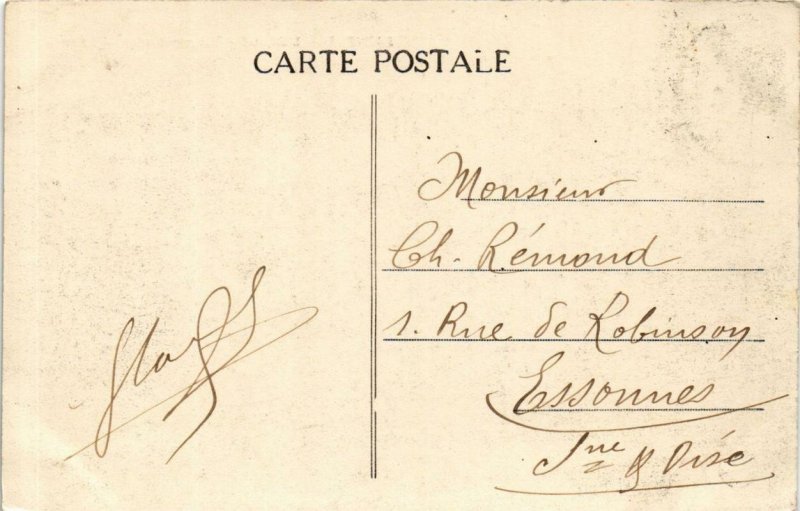 CARTE POSTALE
Monsieur
Ch. Rémond
1. Rue de Robinson
Essonnes
Sne & Oise